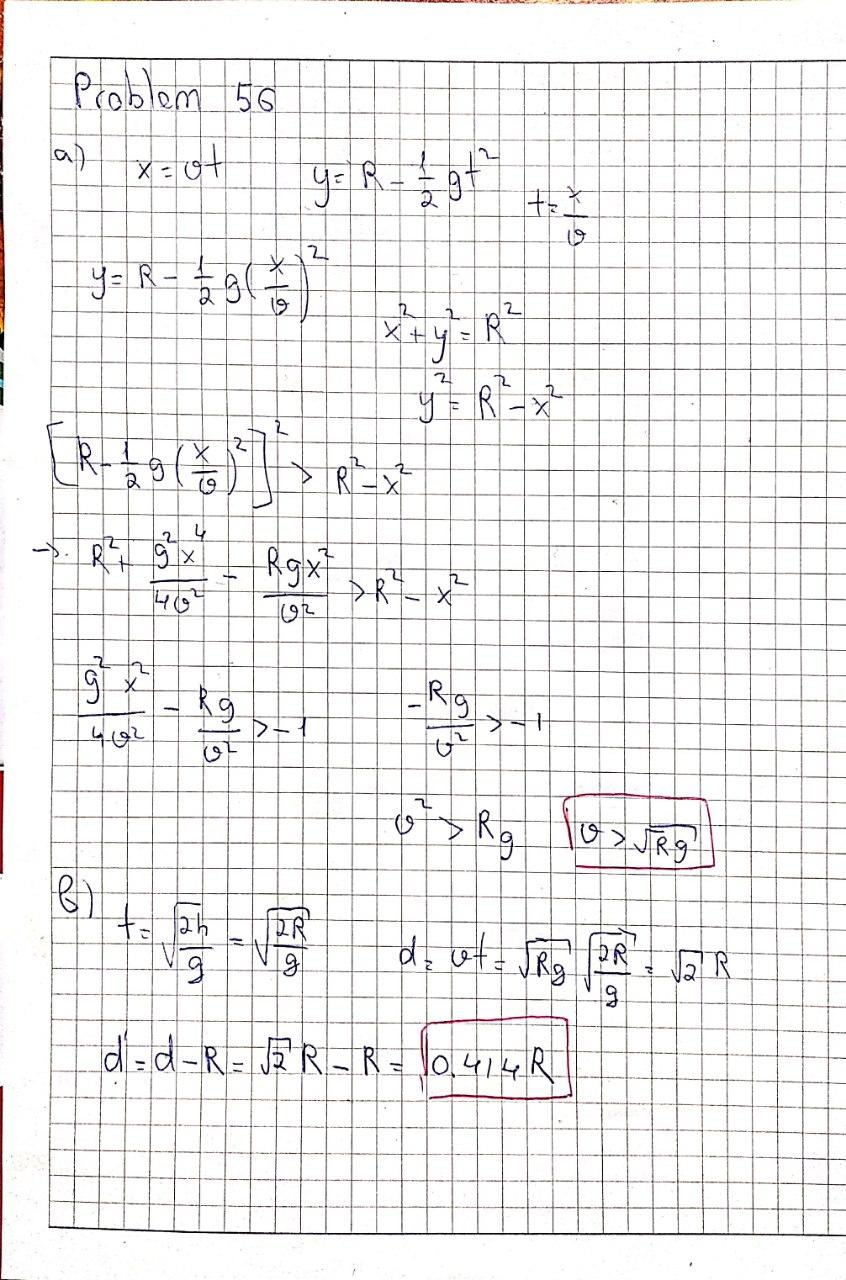 Problem 56
a) x = vt y = R - 1/2 gt² t = x/v
y = R - 1/2 g(x/v)²
x² + y² = R²
y² = R² - x²
[R - 1/2 g (x/v)²]² > R² - x²
→. R² + g²x⁴/4v² - Rgx²/v² > R² - x²
g²x²/4v² - Rg/v² > -1 -Rg/v² > -1
v² > Rg v > √Rg
b) t = √2h/g = √2R/g d = vt = √Rg √2R/g = √2 R
d' = d - R = √2 R - R = 0.414R